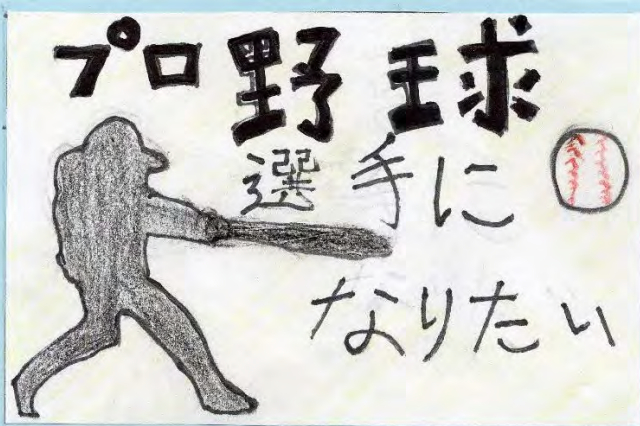 プロ野球
選手に
なりたい